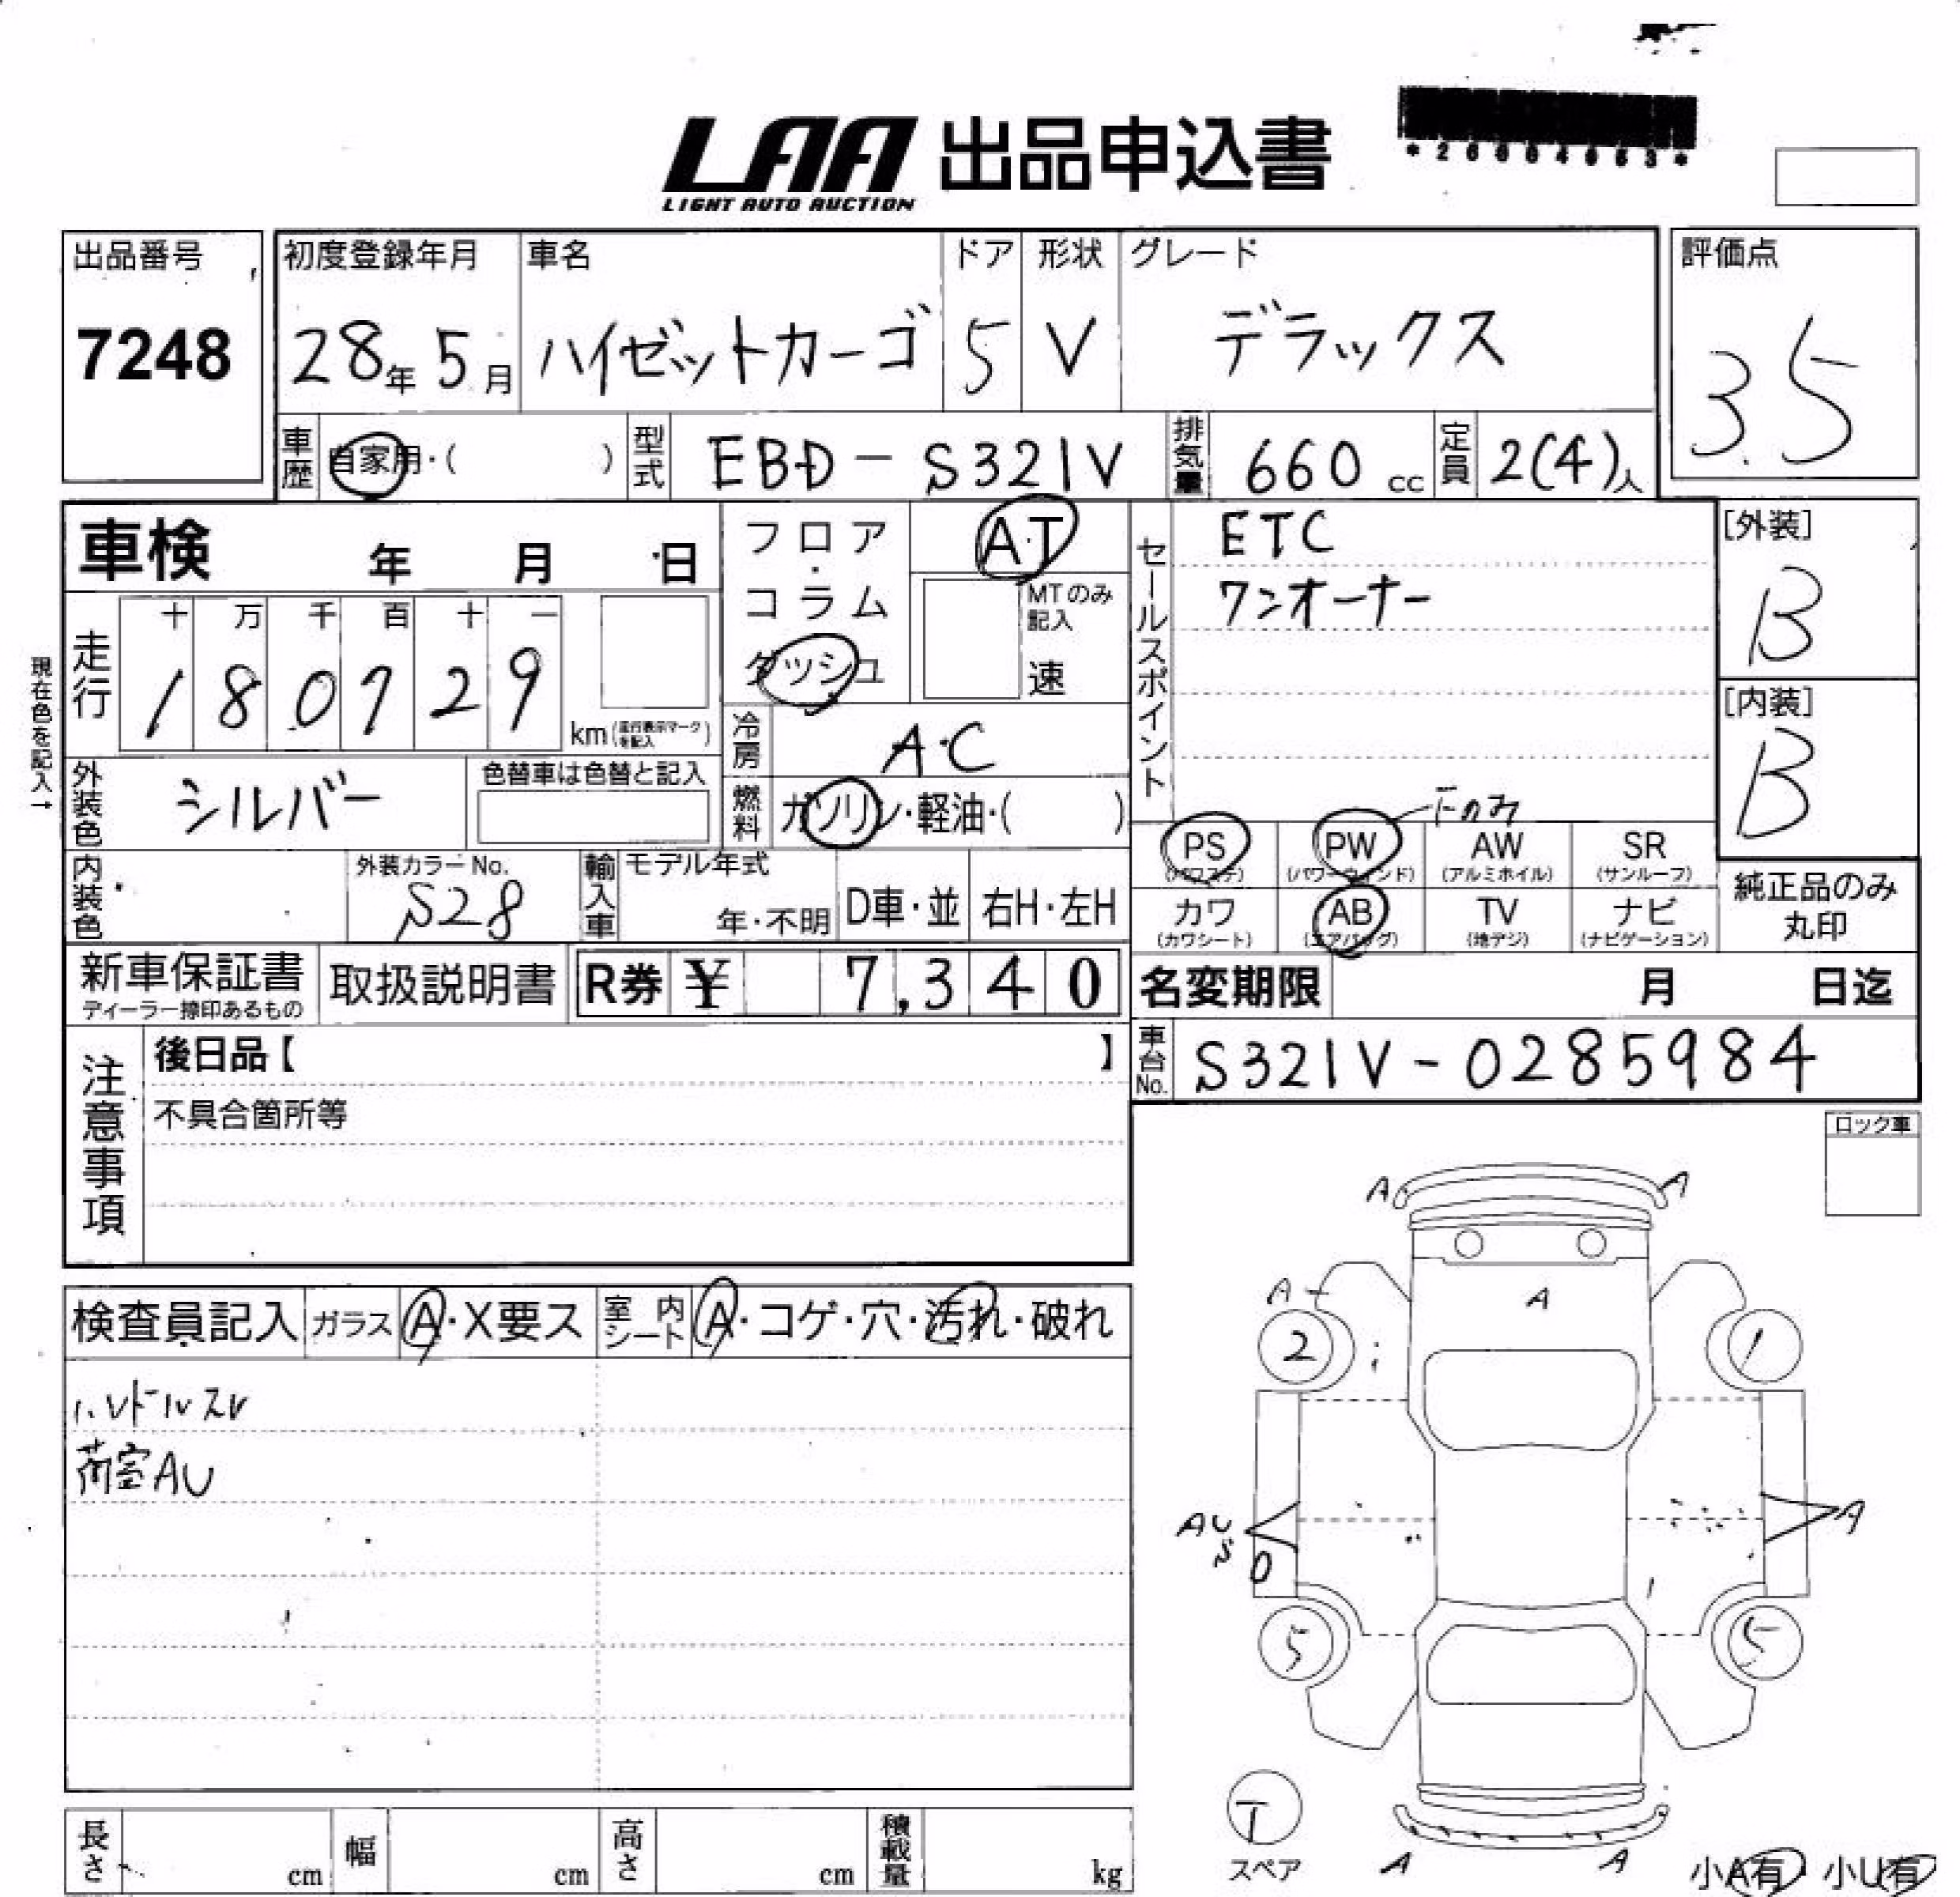 *26004063*
LAA 出品申込書
LIGHT AUTO AUCTION
出品番号
7248
初度登録年月
28年5月
車名
ハイゼットカーゴ
ドア
5
形状
V
グレード
デラックス
評価点
3.5
車歴
自家用・( )
型式
EBD-S321V
排気量
660cc
定員
2(4)人
車検 年 月 日
フロア・コラム
ダッシュ
AT
MTのみ記入
速
セールスポイント
ETC
ワンオーナー
[外装]
B
[内装]
B
現在色を記入→
走行
十 万 千 百 十 一
180729
km(走行表示マークを記入)
冷房
A・C
外装色
シルバー
色替車は色替と記入
燃料
ガソリン・軽油・( )
下のみ
PS
(パワステ)
PW
(パワーウィンド)
AW
(アルミホイル)
SR
(サンルーフ)
カワ
(カワシート)
AB
(エアバッグ)
TV
(地デジ)
ナビ
(ナビゲーション)
純正品のみ
丸印
内装色
外装カラーNo.
S28
輸入車
モデル年式
年・不明
D車・並
右H・左H
新車保証書
ディーラー捺印あるもの
取扱説明書
R券 ¥ 7,340
名変期限 月 日迄
車台No.
S321V-0285984
注意事項
後日品【 】
不具合箇所等
ロック車
検査員記入
ガラス
A・X要ス
室内シート
A・コゲ・穴・汚れ・破れ
ハンドルスレ
荷室AU
A A
A
A
2 1
AU
A
5 5
A A
T
スペア
小A有・小U有
長さ cm
幅 cm
高さ cm
積載量 kg